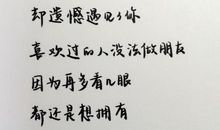 却遗憾遇见了你
喜欢过的人没法做朋友
因为再多看几眼
都还是想拥有